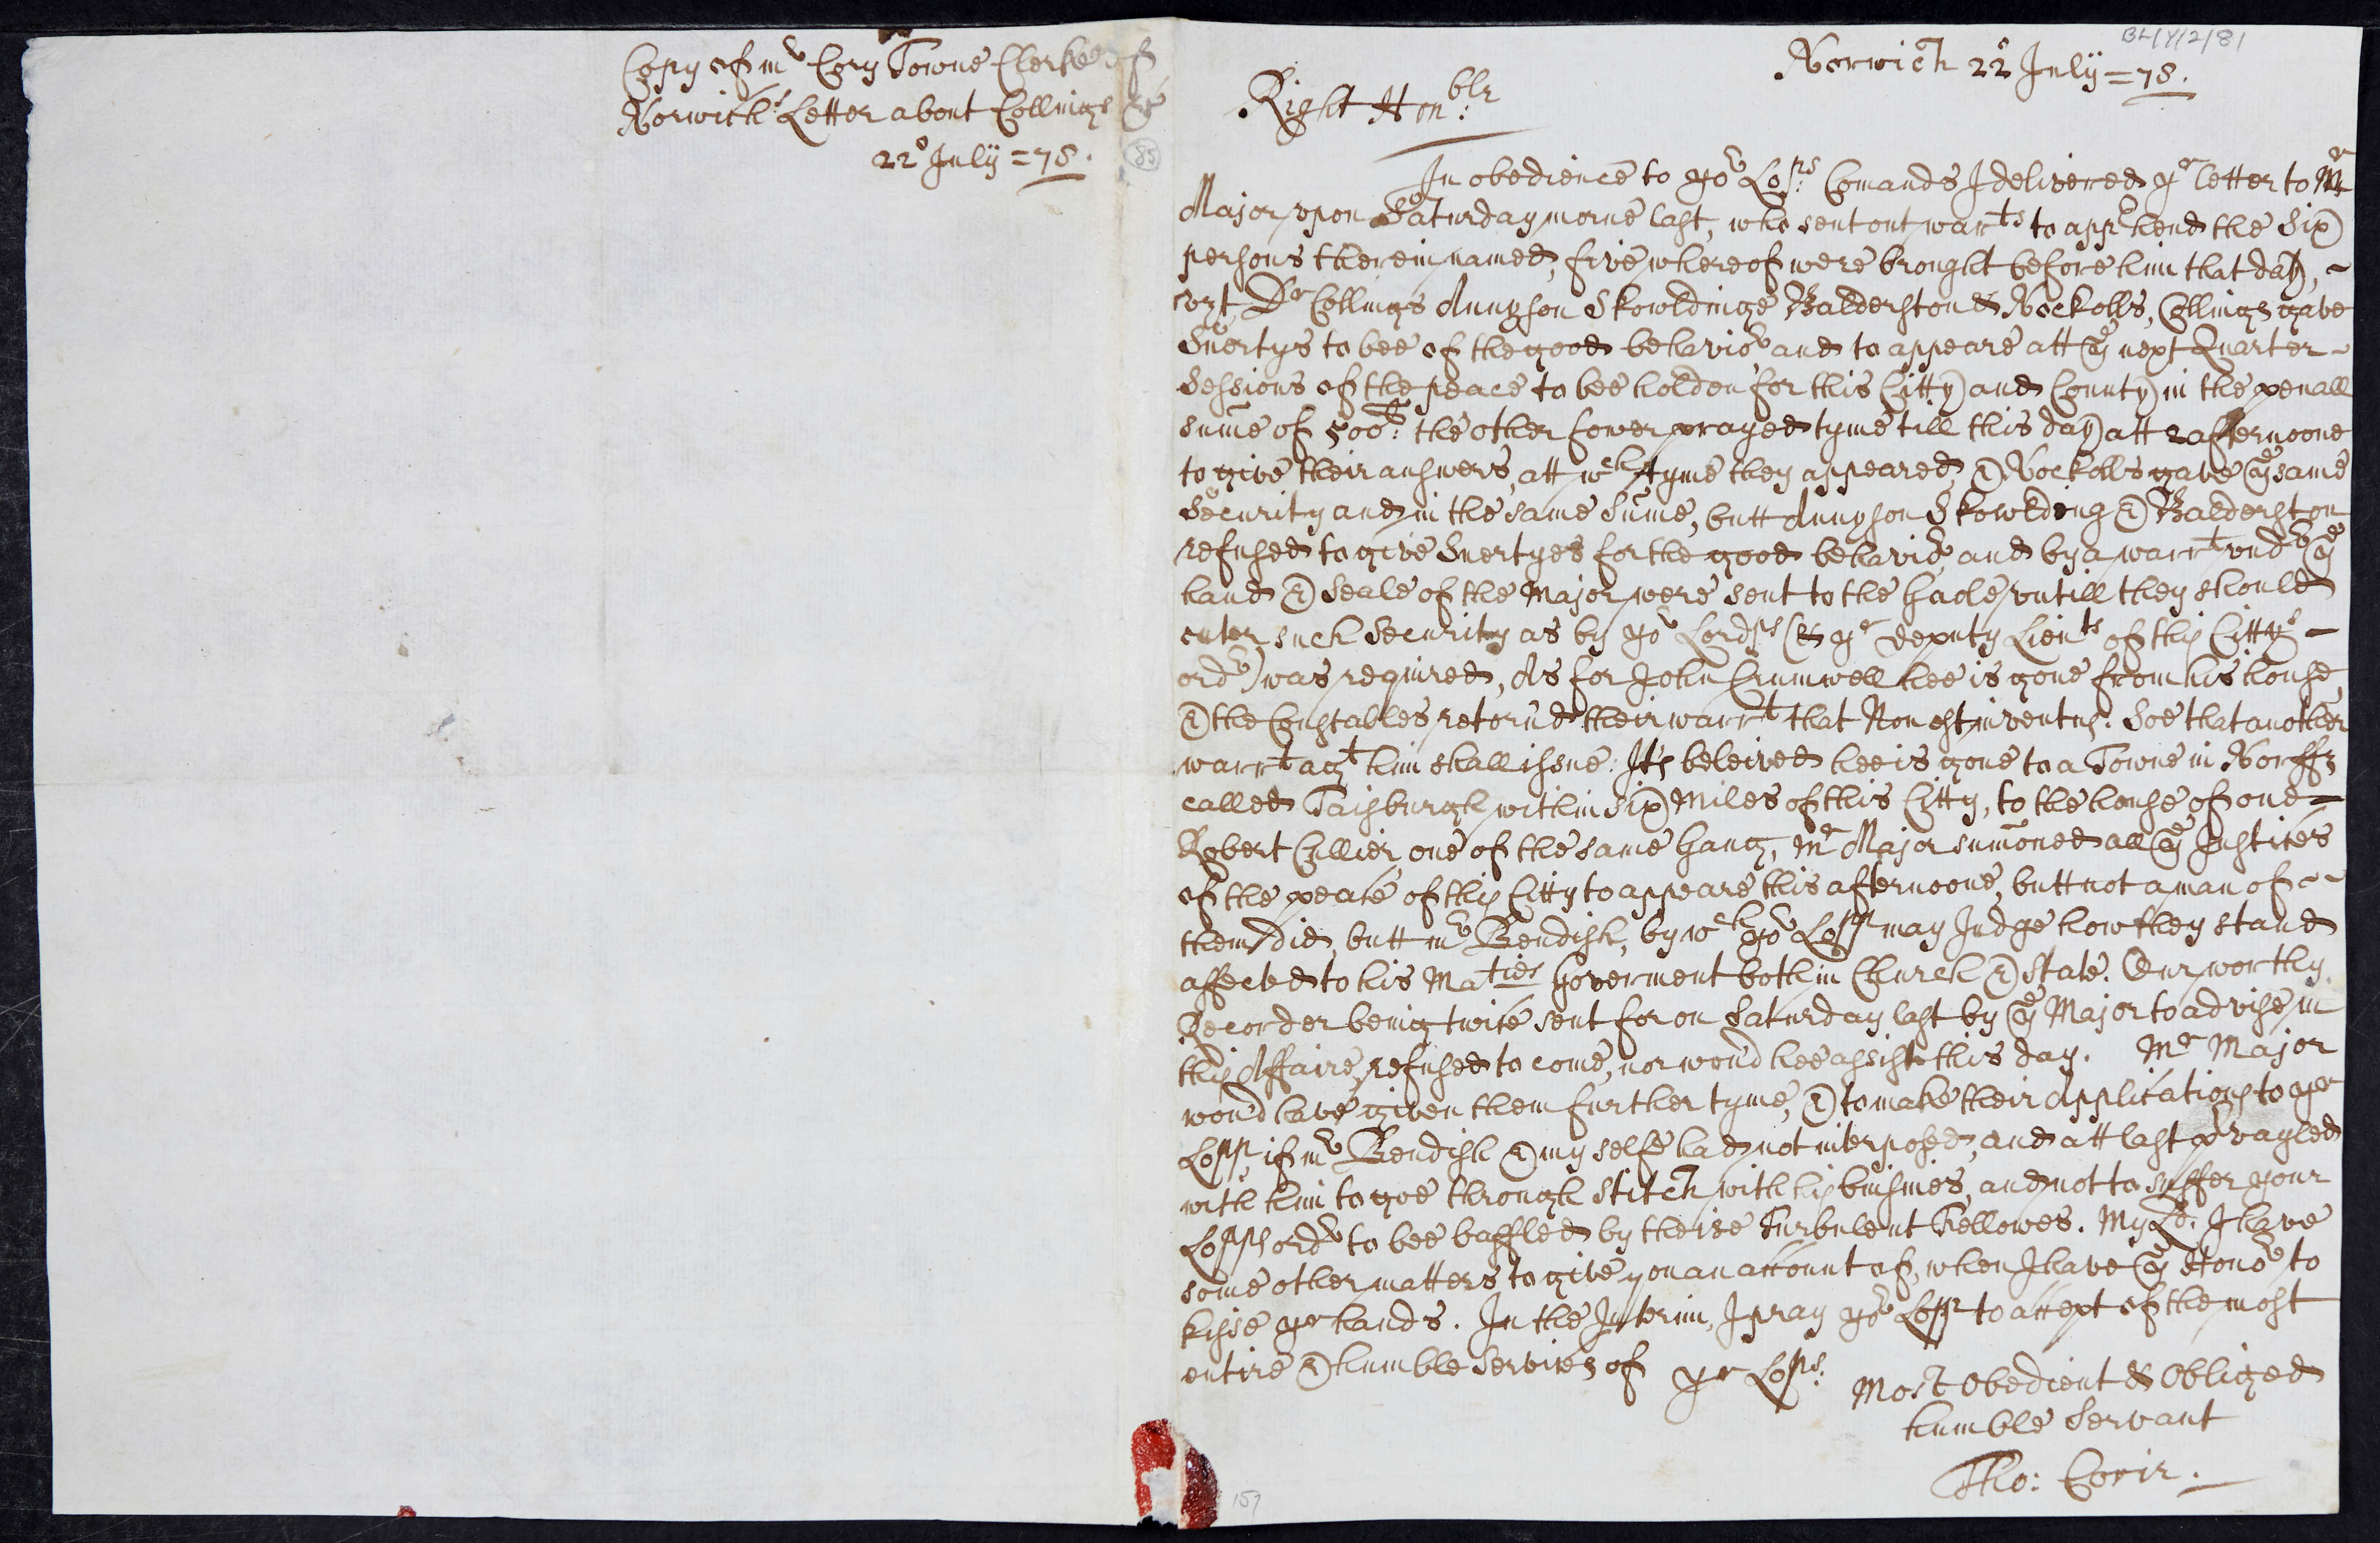 Copy of mr Cory Towne Clerke of
Norwich's Letter about Collings &c
22o July = 78.
85
BL/Y/2/81
Norwich 22o July = 78.
Right Honble:
In obedience to yor Lops: Comands I delivered yr letter to Mr
Major upon Saturday morne last, who sent out warrts to apprhend the Six
persons therein named, five whereof were brought before him that day, ~
vizt Dr Collings Annyson Skowldinge Balderston & Nockolls, Collings gave
Suertys to bee of the good behavior and to appeare att ye next Quarter ~
Sessions of the peace to bee holden for this Citty and County in the penall
sume of 500li: the other fower prayed tyme till this day att 2 afternoone
to give their answers, att wch tyme they appeared, & Nockolls gave ye same
Security and in the same Sume, butt Annyson Skowlding & Balderston
refused to give Suertyes for the good behavior, and by a warrt undr ye
hand & Seale of the Major were sent to the Gaole untill they should
enter such Security as by yor Lordps (& yr deputy Lieuts of this Citty's ~
ordr) was required, As for John Crumwell hee is gone from his house,
& the Constables retorn'd their warrt that Non est inventus. Soe that another
warrt agt him shall issue: It's beleived hee is gone to a Towne in Norff
called Taisburgh within six Miles of this Citty, to the house of one =
Robert Cullier one of the same Gang, Mr Major sumoned all ye Justices
of the peace of this Citty to appeare this afternoone, butt not a man of ~ ~
them did, butt mr Bendish, by wch yor Lopp may Judge how they stand
affected to his Maties Goverment both in Church & State. Our worthy
Recorder being twice sent for on Saturday last by ye Major to advise in
this Affaire, refused to come, nor wou'd hee assist this day. Mr Major
wou'd have given them further tyme, & to make their Applications to yr
Lopp, if mr Bendish & my selfe had not interposed, and att last prvayled
with him to goe through stitch with his buisnies, and not to suffer your
Lopps ordr to bee baffled by theise Turbulent Fellowes. My Ld. I have
some other matters to give you an account of, when I have ye Honor to
kisse yr hands. In the Interim, I pray yor Lopp to accept of the most
entire & humble Services of yr Lops:
Most Obedient & Obliged
humble Servant
Tho: Corie.
157